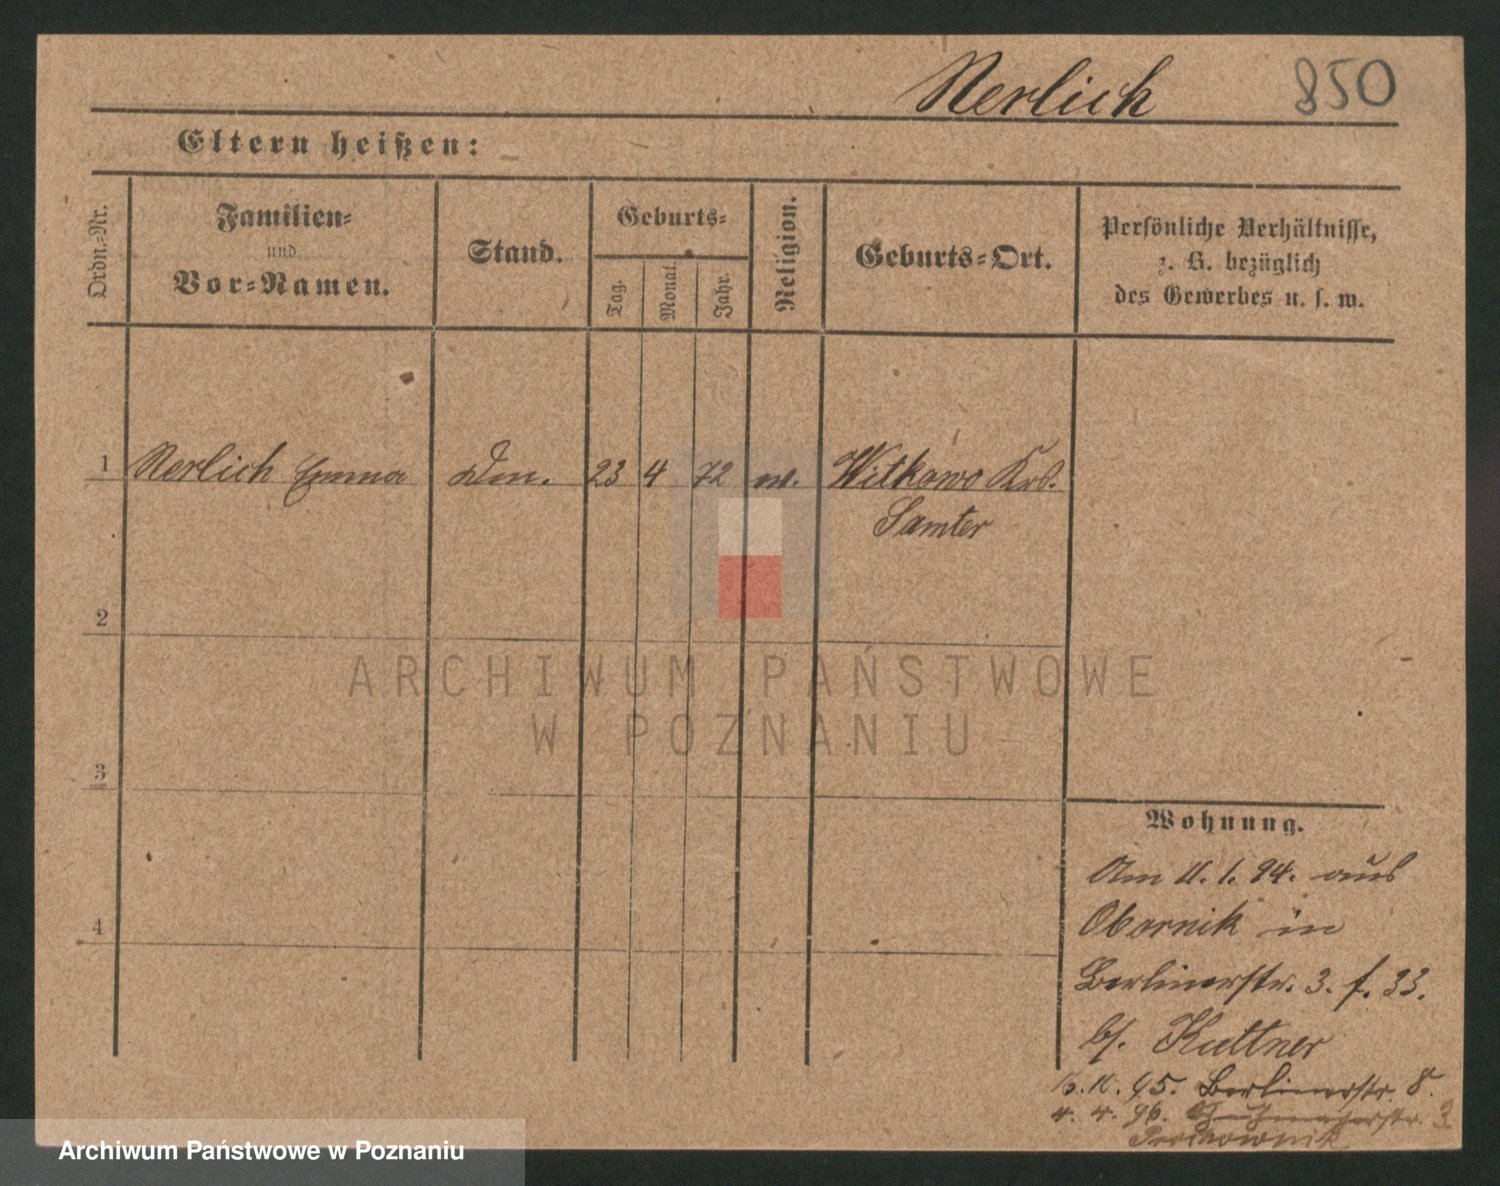 Nerlich 850
Eltern heißen:
Ordn.-Nr.
Familien-
und
Vor-Namen.
Stand.
Geburts-
Tag.
Monat.
Jahr.
Religion.
Geburts-Ort.
Persönliche Verhältnisse,
z. B. bezüglich
des Gewerbes u. s. w.
1 Nerlich Emma 23 4 72 Witkowo Krs.
Samter
2
ARCHIWUM PAŃSTWOWE
W POZNANIU
3
Wohnung.
Am 11. 1. 94. aus
Obornik in
4
Berlinerstr. 3. f. 33.
b/. Kuttner
10. 95. Berlinerstr. 8.
4. 4. 96.
Archiwum Państwowe w Poznaniu